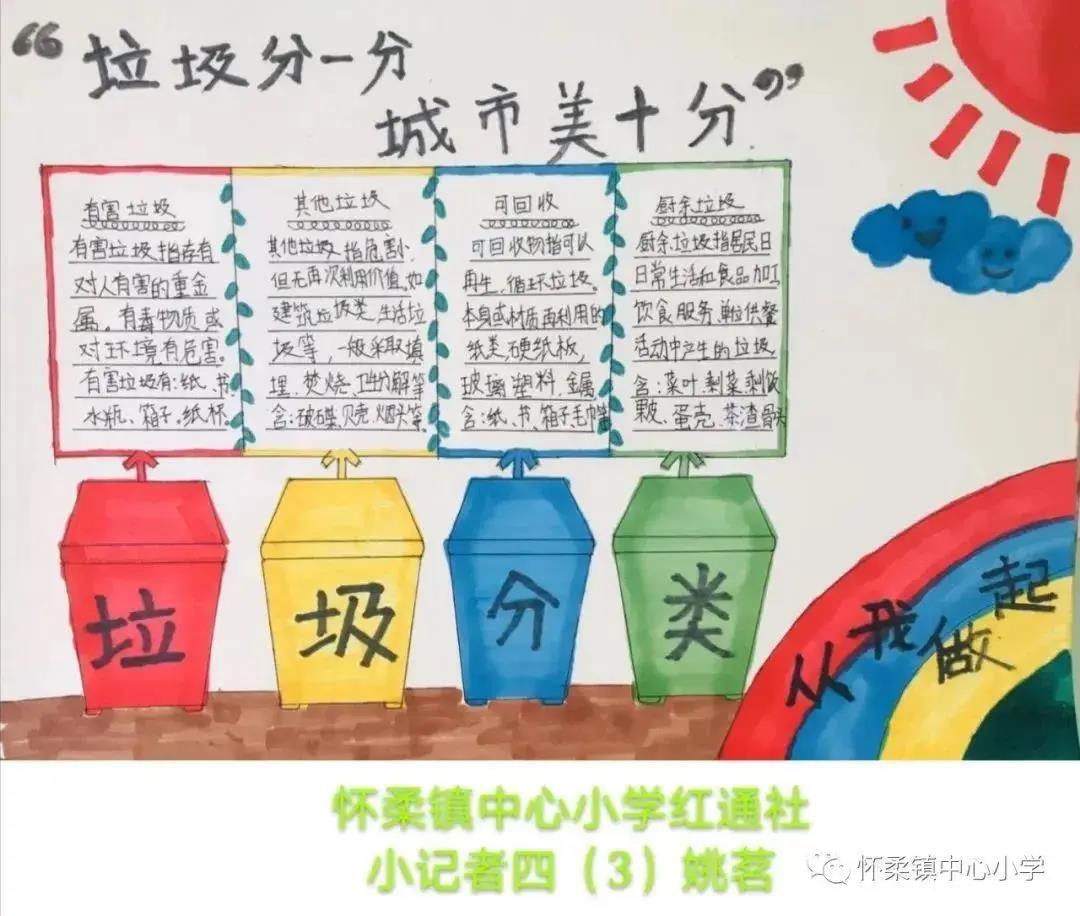 “垃圾分一分
城市美十分”
有害垃圾
有害垃圾指存有
对人有害的重金
属、有毒物质或
对环境有危害。
有害垃圾有:纸、书、
水瓶、箱子。纸杯。
其他垃圾
其他垃圾指危害小、
但无再次利用价值。如
建筑垃圾类,生活垃
圾等,一般采取填
埋、焚烧、卫生分解等
含:破碟、贝壳、烟头等。
可回收
可回收物指可以
再生、循环垃圾。
本身或材质再利用的
纸类、硬纸板,
玻璃、塑料、金属
含:纸、书、箱子、毛巾等
厨余垃圾
厨余垃圾指居民日
日常生活和食品加工
饮食服务、单位供餐
活动中产生的垃圾
含:菜叶、剩菜、剩饭
果皮、蛋壳、茶渣、骨头
垃圾分类
从我做起
怀柔镇中心小学红通社
小记者四(3)姚茗
怀柔镇中心小学